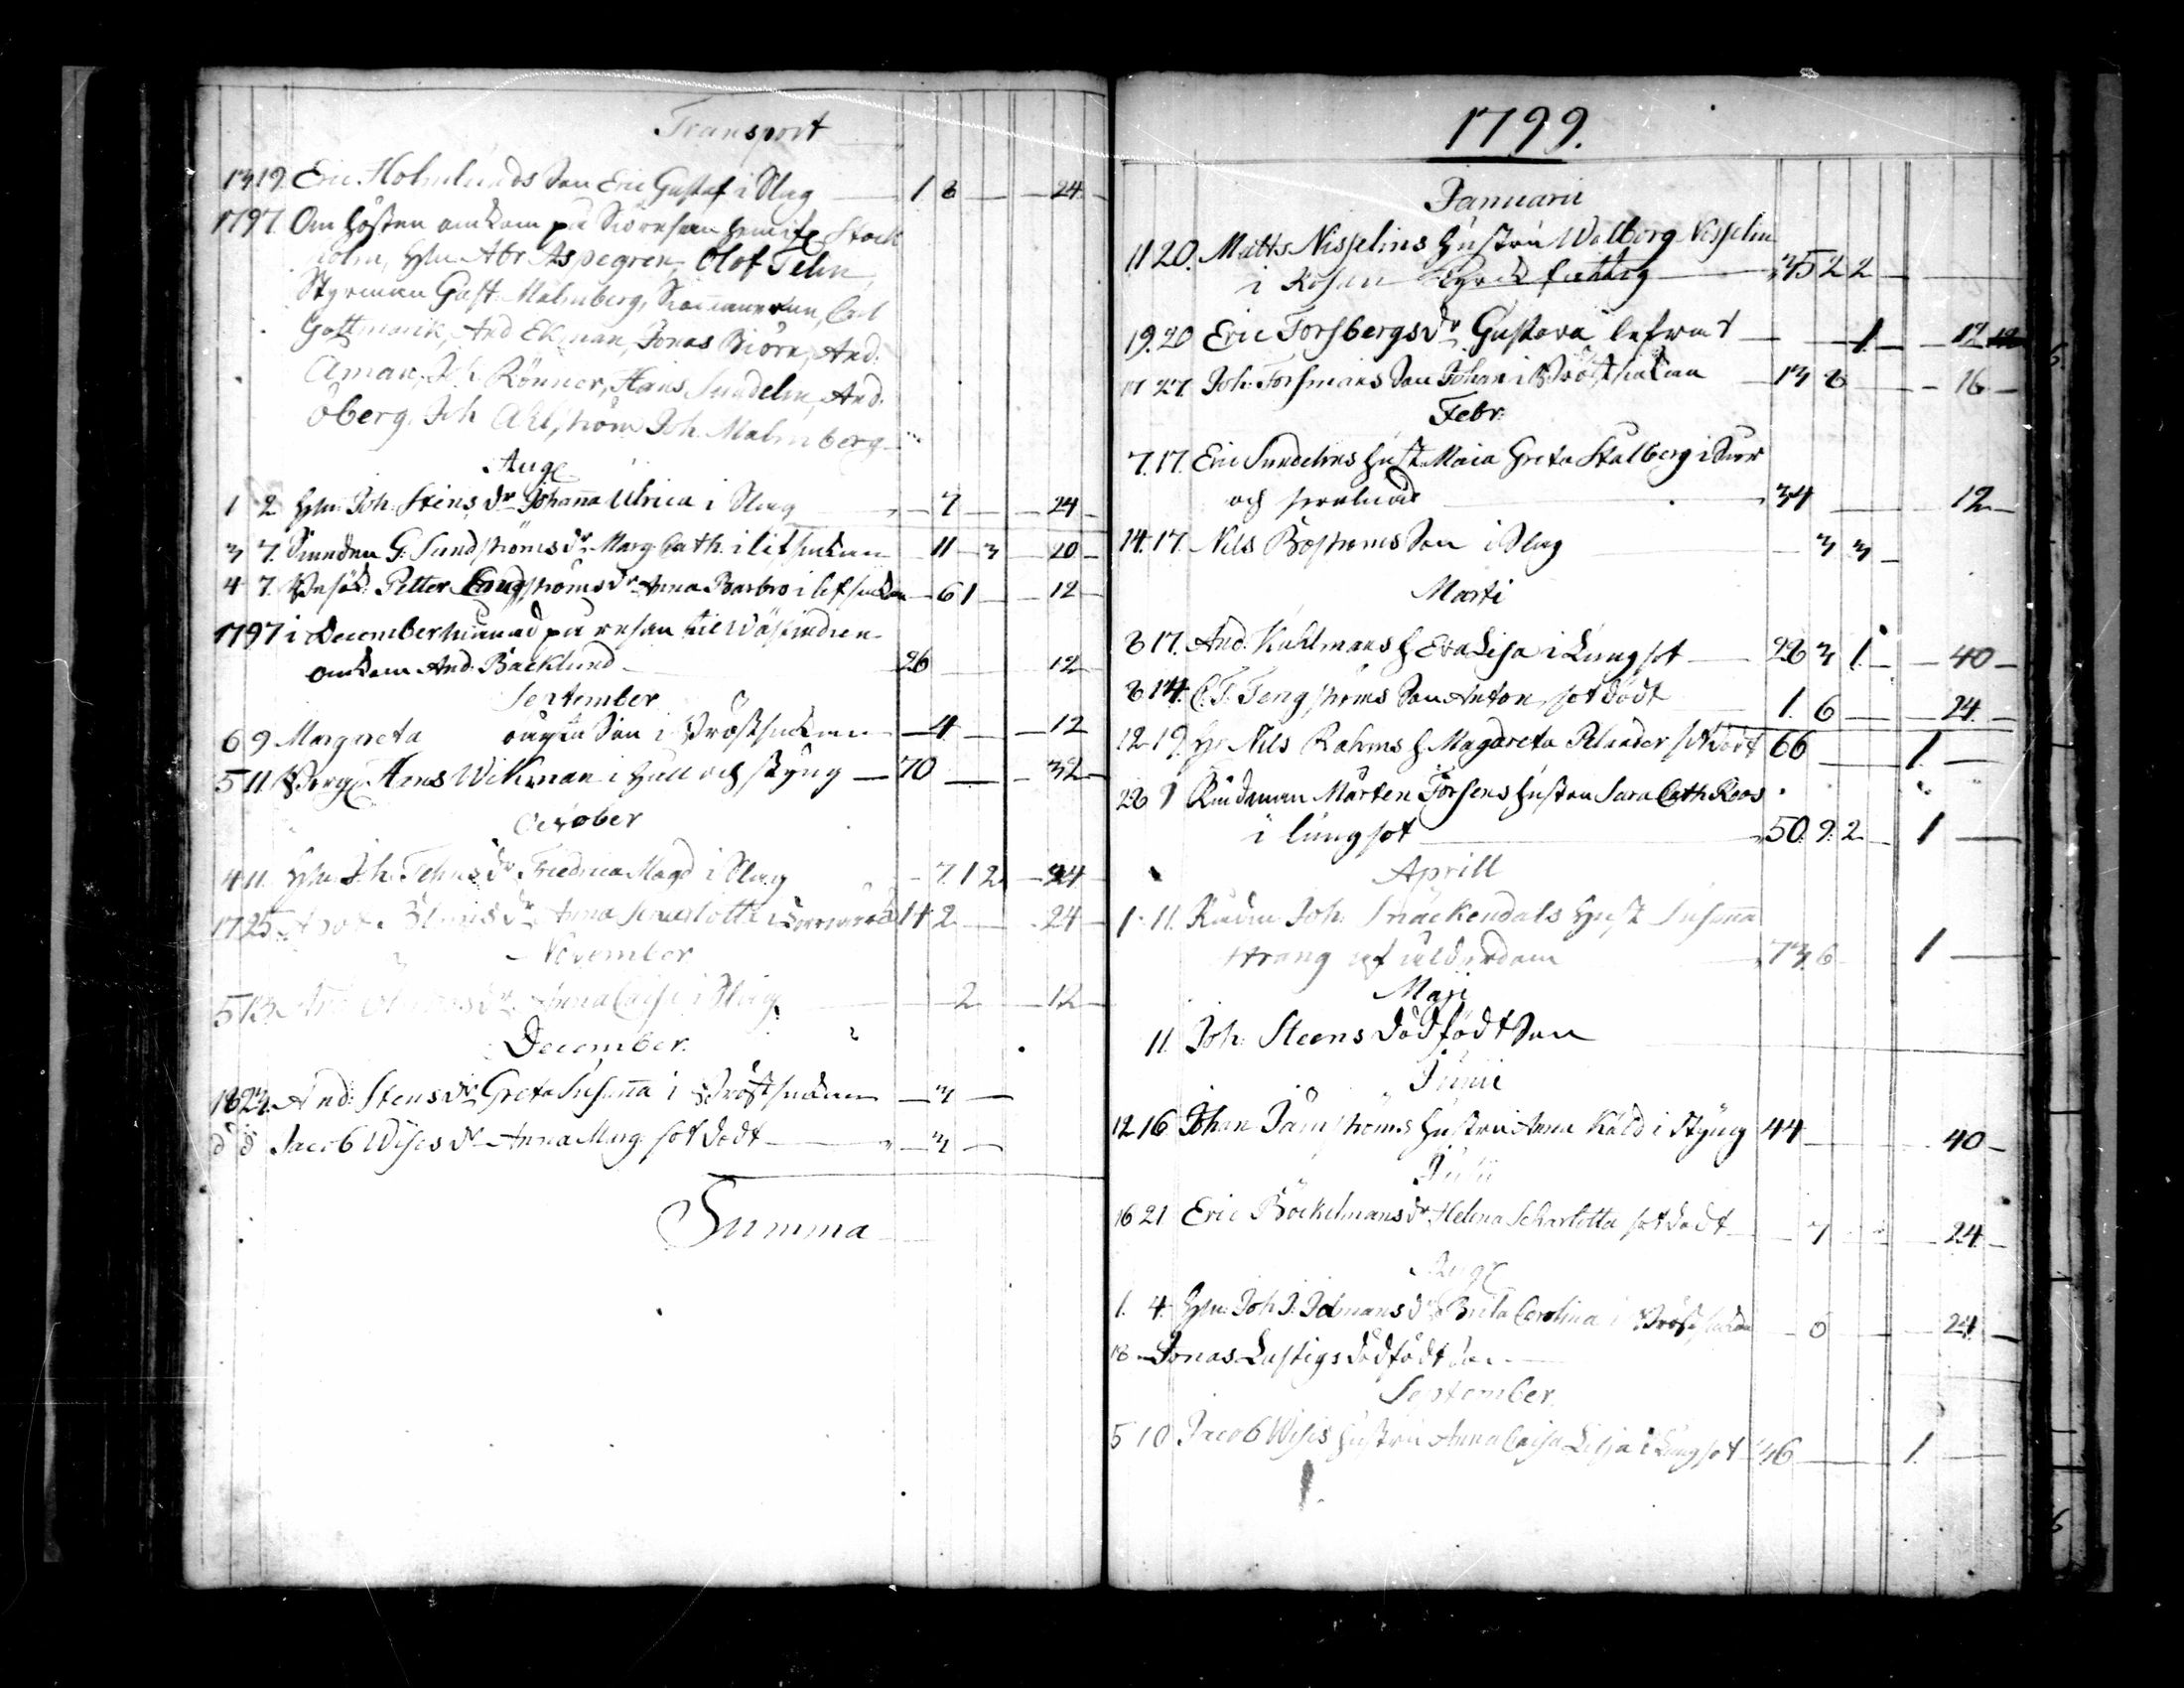 Transport
13 19. Eric Holmlunds Son Eric Gustaf i Slag 1 8 24
1797 Om hösten omkom på Siöresan hemifr Stock
holm, Hhn Abr Aspegren, Olof Telin,
Styrman Gust. Malmberg, Siömännerna, Carl
Gottmark, And Ekman, Jonas Biörn, And.
Aman, Joh. Rönner, Hans Sundelin, And.
Öberg, Joh Ahlström Joh. Malmberg
Aug
1 2 Hhn Joh. Steins dr Johanna Ulrica i Slag 7 24
3 7. G: Sundströms dr Marg. Cath. i 11 3 20
4 7. Petter dr Anna Barbro i 6 1 12
1797 i December månad på resan til Wästindien
omkom And. Backlund 26 12
September
6 9 Margareta oägta Son i Bröstsiukan 4 12
5 11. Borg Hans Wikman i Håll och styng 70 32
October
4 11. Hhn Joh. Telins dr Fredrica Magd i Slag 7 1 2 24
17 25 dr Anna Scharlotta i 14 2 24
November
5 13. dr Anna Caisa i Slag 2 12
December.
18 23. And: Stens dr Greta Susanna i Bröstsiukan 3
d d Jacob Wises dr Anna Marg. sot död 3
Summa
1799.
Januarii
11 20. Matts Nisselins Hustru Walborg Nisselin
i Rosen fattig 75 2 2
19. 20 Eric Forsbergs dr Gustava 1. 12
17 27. Joh: Forsmans Son Johan i Bröstsiukan 13 8 16
Febr:
7. 17. Eric Sundelins Hust. Maia Greta Stalberg i
och 34 12
14. 17. Nils Boströms Son i Slag 3 3
Marti
8 17. And. Kuhlmans H Eva Lisa i Lungsot 28 3 1. 40
8 14. C. F. Tengströms Son Anton sot död 1. 6 24.
12 19. Hr Nils Rahms H Magdareta Pelander sot död 66 1.
28 Rådman Mårten Forsens Hustru Sara Cath. Roos
i lungsot 50. 9. 2 1
Aprill
1. 11. Rådm Joh. Hust Susanna
Strang af ålderdom 73 6 1
Maji
11. Joh: Steens dödfödt Son
Junii
12 16 Johan Hustru Anna Kald i Styng 44 40
Julii
16 21 Eric Böckelmans dr Helena Scharlotta sot död 7 24.
Aug
1. 4. Hhn Joh J. Idmans dr Brita Carolina i Bröstsiukan 24
18 Jonas Lustigs dödfödt Son
September.
5 10 Jacob Wises hustru Anna Caisa Lilja i Lungsot 36 1.